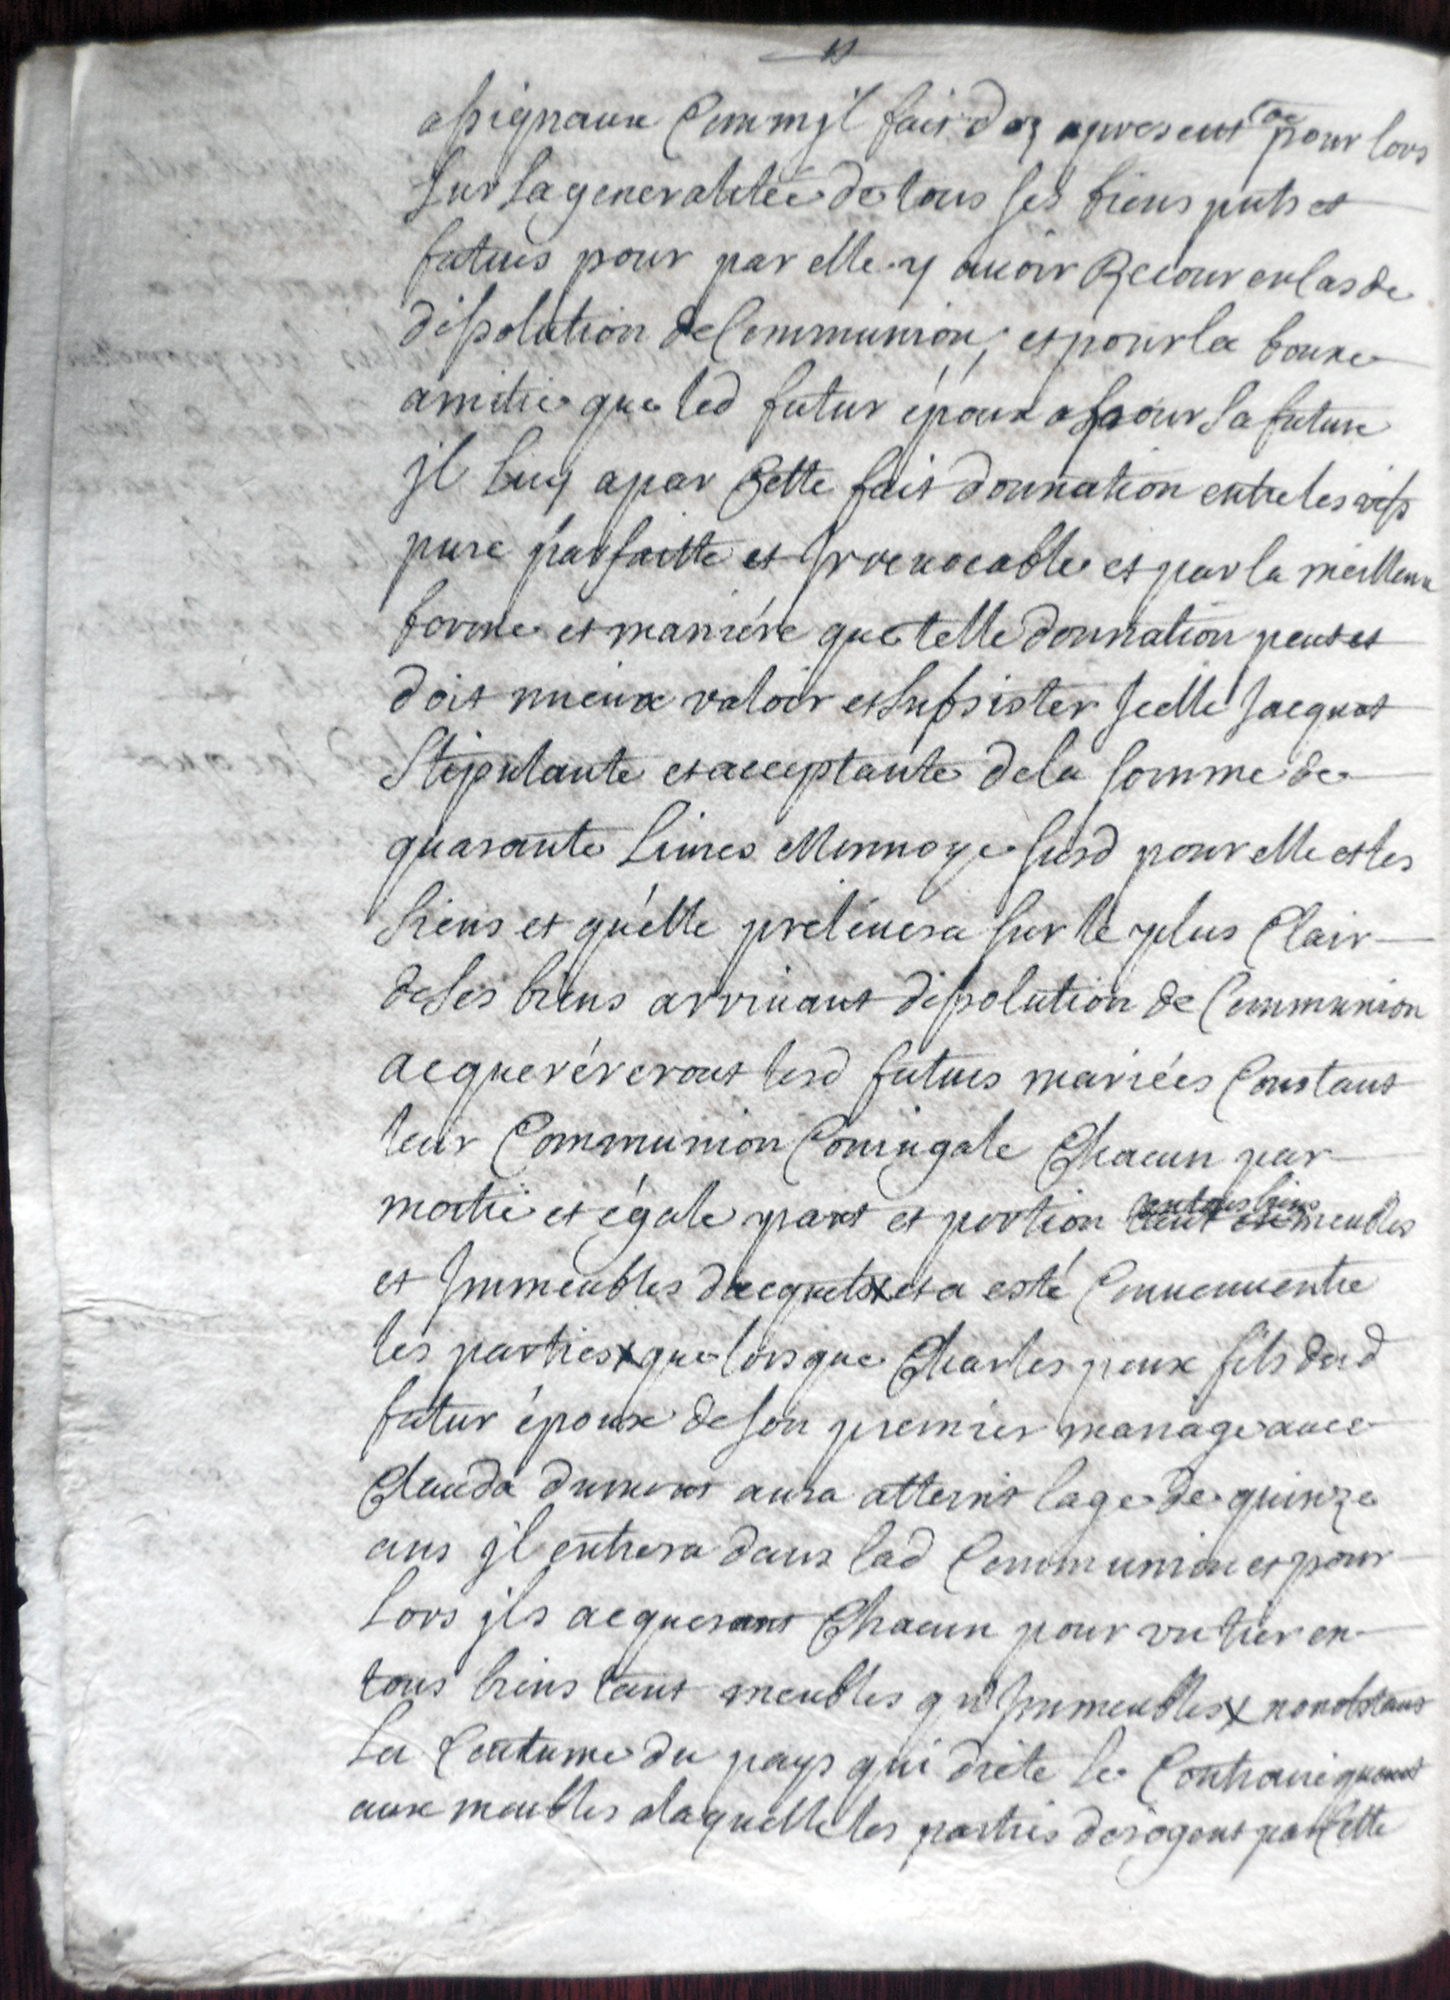 assignaux Comm jl fait dez apresent Co[e] pour lors
sur la generalitée de tous ses biens pnts et
futurs pour par elle y auoir Recour en Cas de
dissolution de Communion, et pour la bonne
amitie que led futur époux a pour sa future
jl luy a par Cette fait donnation entre les vifs
pure parfaitte et Irreuocable et par la meilleure
forme et maniére que telle donnation peut et
doit mieux valoir et subsister Jcelle Jacquot
Stipulante et acceptante de la somme de
quarante Liures Monnoye susd pour elle et les
siens et qu'elle préléuera sur le plus Clair
de ses biens arriuant dissolution de Communion
acqueréreront lesd futurs mariées Constant
leur Communion Coniugale Chacun par
moitie et égale part et portion en tous biens meubles
et Immeubles dacquets et a esté Conuenu entre
les parties que lorsque Charles peux fils dud
futur époux de son premier mariage auec
Clauda dumont aura atteint lage de quinze
ans jl entrera dans lad Communion et pour
Lors jls acqueront Chacun pour vn tier en
tous biens tant meubles qu'Immeubles nonobstant
La Coutume du pays qui dicte le Contraire quant
aux meubles a laquelle les parties dérogent par Cette